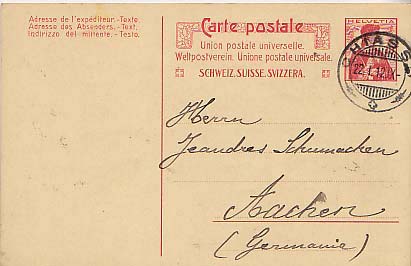 Adresse de l'expéditeur.-Texte.
Adresse des Absenders.-Text.
Indirizzo del mittente.-Testo.
Carte postale
Union postale universelle.
Weltpostverein. Unione postale universale.
SCHWEIZ. SUISSE. SVIZZERA.
HELVETIA
CHIASSO
22.I.12.IX-
Herrn
Jeandres Schumacher
Aachen
(Germanie)